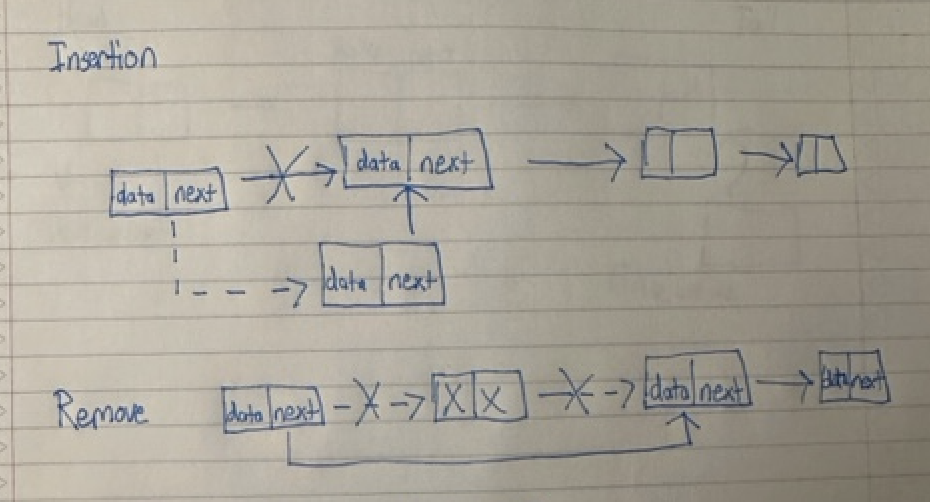 Insertion
data next data next
data next
Remove data next X X data next data next